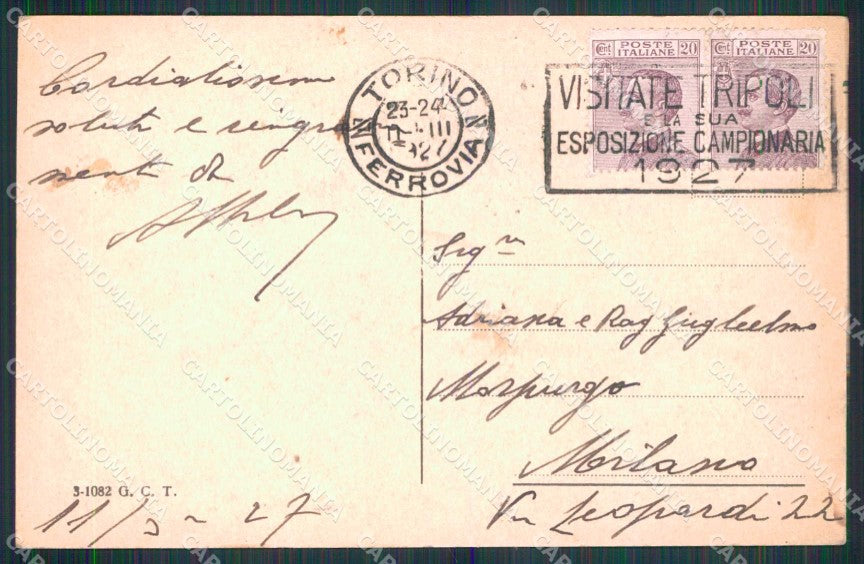 Cordialissimi
saluti e ringra
menti da
TORINO
23-24
FERROVIA
POSTE ITALIANE
Cent 20
POSTE ITALIANE
Cent 20
VISITATE TRIPOLI
E LA SUA
ESPOSIZIONE CAMPIONARIA
1927
Sig.ri
Adriana e Rag Guglielmo
Morpurgo
Milano
Via Leopardi 22
3-1082 G. C. T.
11/3 - 27
CARTOLINOMANIA